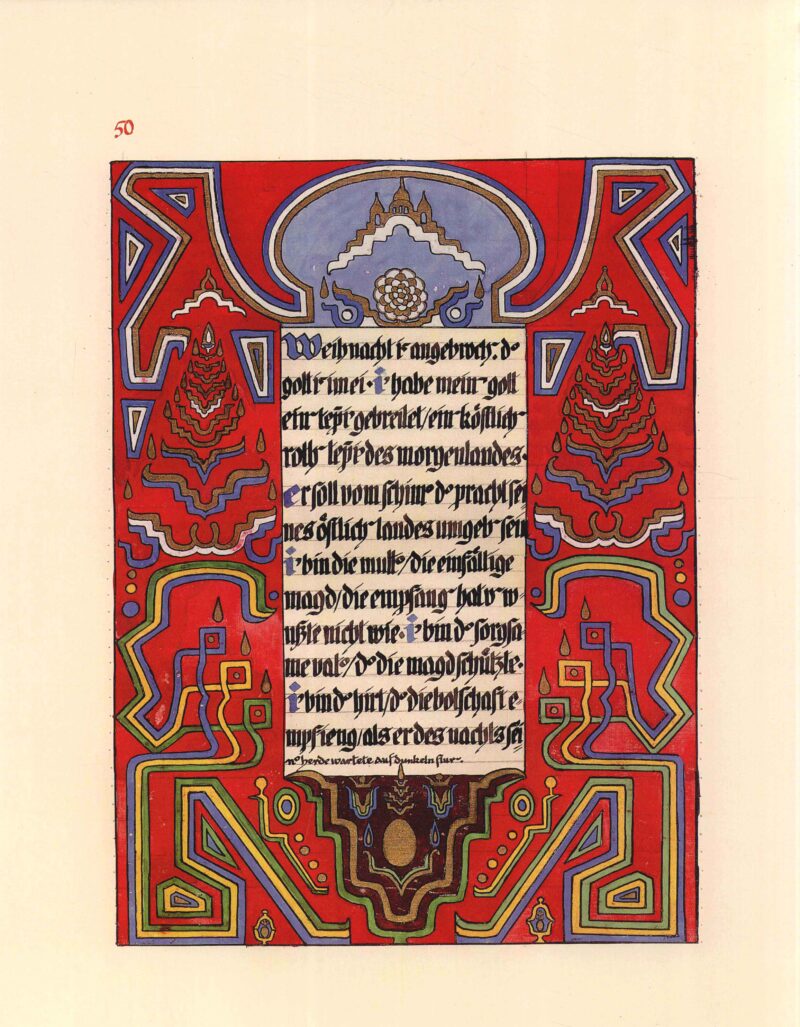 50
Weihnacht iʳ angebroch: dᵒ
gott iʳ im ei · iʳ habe meinʳ gott
einʳ tepʳ gebreitet / einʳ köstlichʳ
rothʳ tepʳ des morgenlandes ·
er soll vom schimʳ dᵒ pracht sei
nes östlichʳ landes umgebʳ sein
iʳ bin die muttᵒ / die einfältige
magd / die empfangʳ hat v w=
ußte nicht wie · iʳ bin dᵒ sorgsa
me vatᵒ / dᵒ die magd schützte ·
iʳ bin dᵒ hirt / dᵒ die botschaft e=
mpfieng / als er des nachts sei
nᵒ herde wartete auf dunkeln flurʳ.